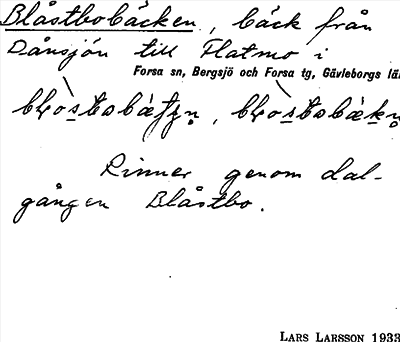 Blåstbobäcken, bäck från
Dånsjön till Flatmo i
Forsa sn, Bergsjö och Forsa tg, Gävleborgs lä
Rinner genom dal-
gången Blåstbo.
LARS LARSSON 1933